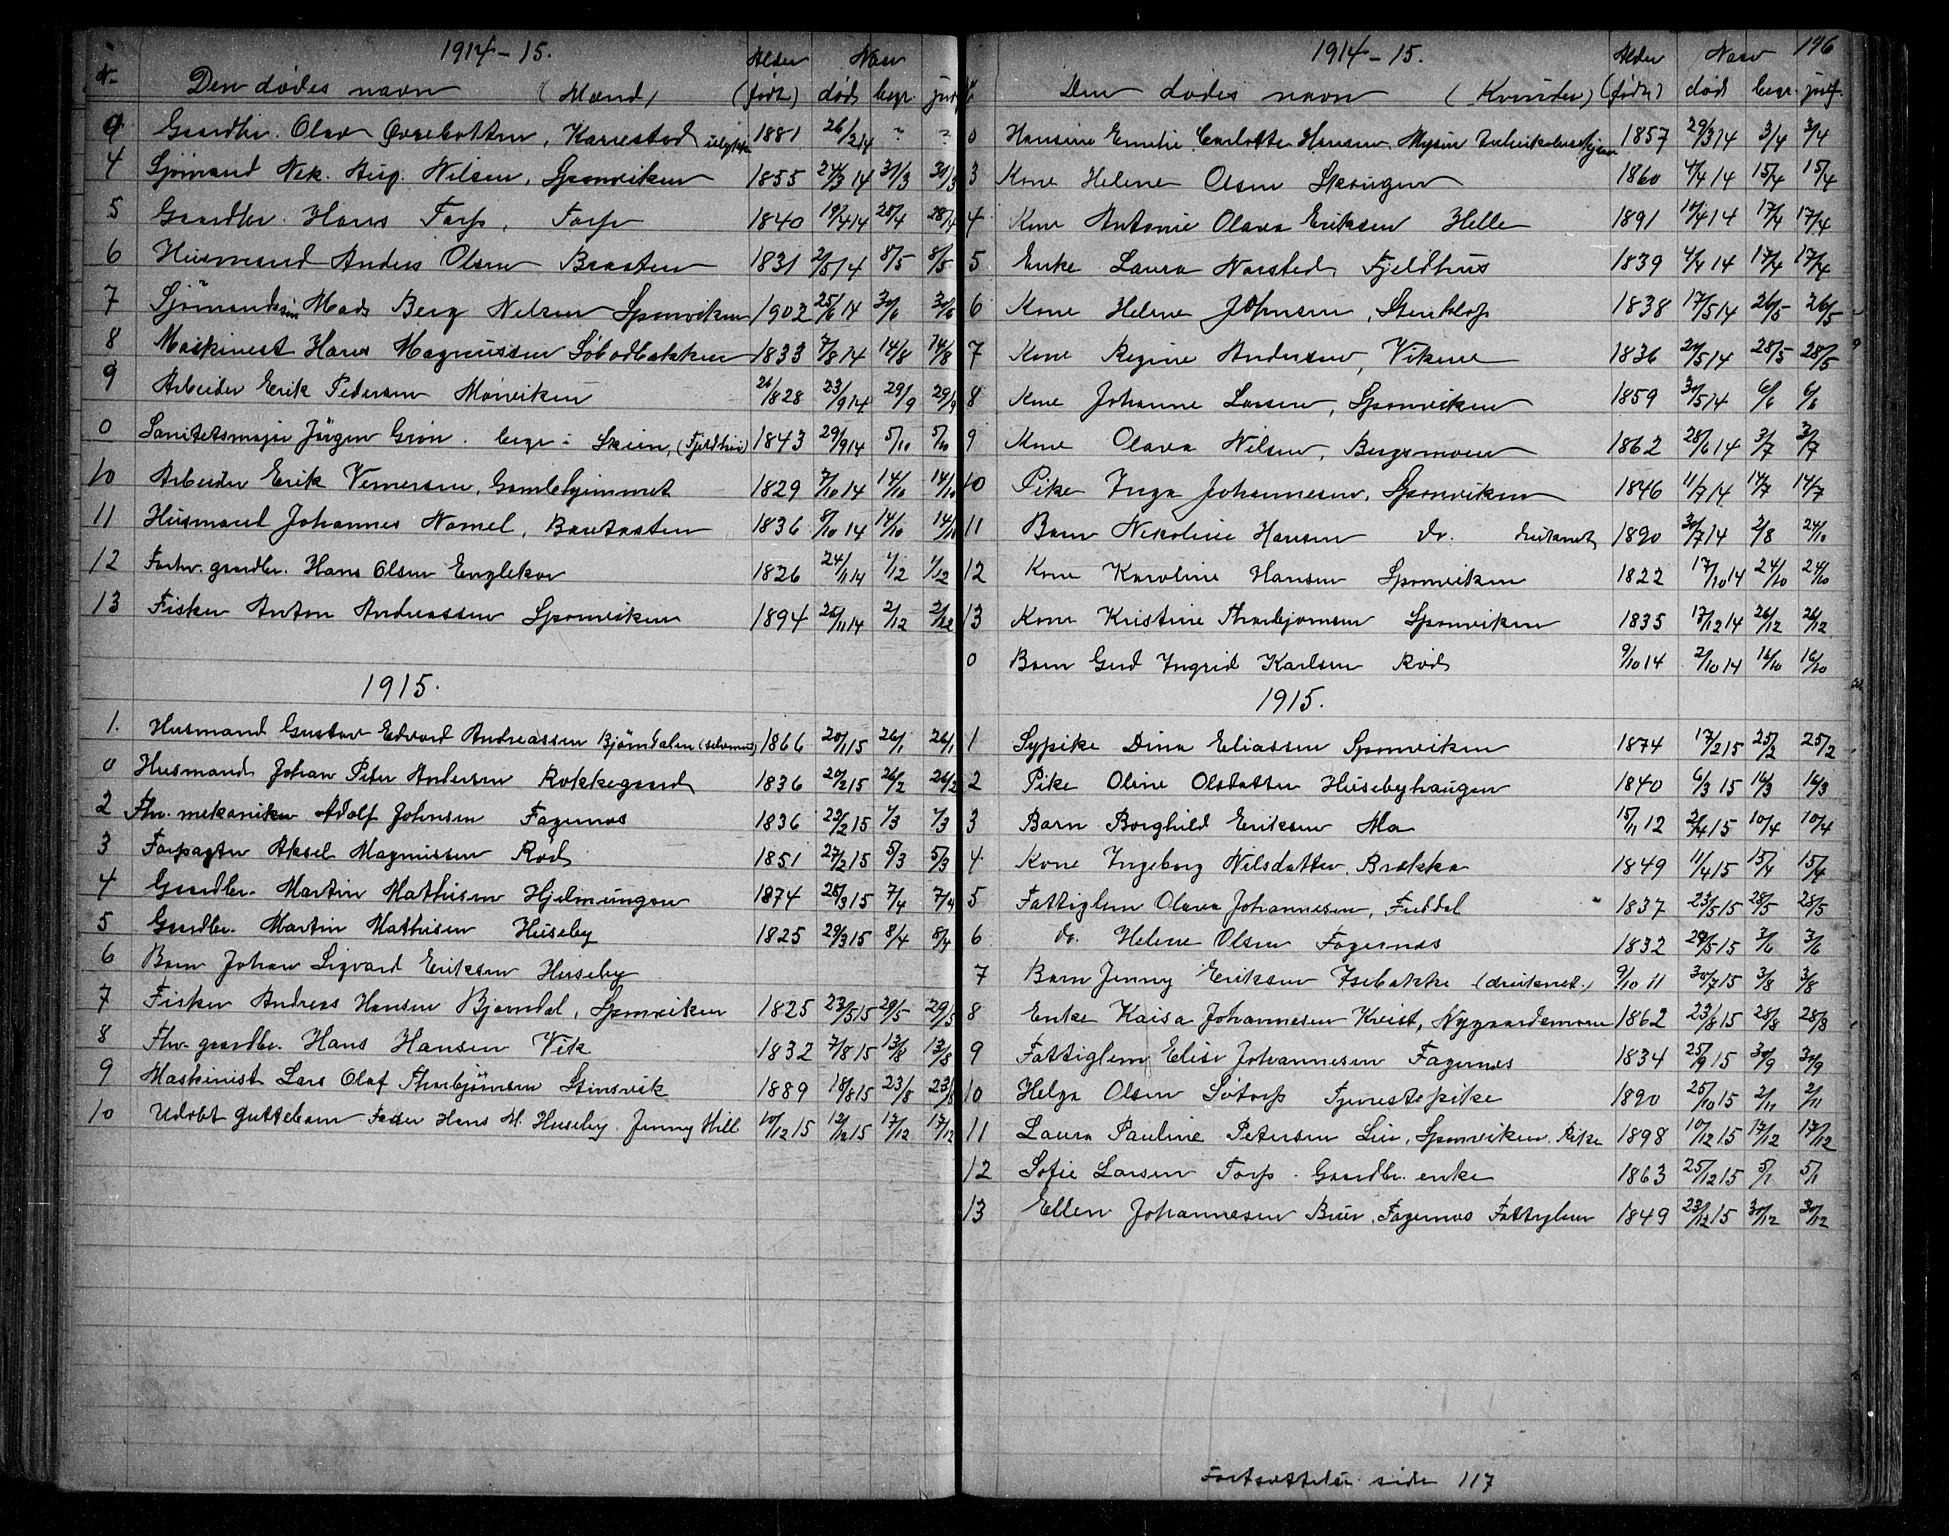 1914 – 15.
No Den dødes navn (Mænd) Alder (født) Naar død begr. jordf.
0 Gaardbr. Olav Øvrebotten, Karrestad ulykke 1881 26/2 14 " "
4 Sjømand Nik. Aug. Nilsen, Sponviken 1855 24/3 14 31/3 31/3
5 Gaardbr. Hans Torp, Torp 1840 19/4 14 28/4 28/4
6 Husmand Anders Olsen Braaten 1831 2/5 14 8/5 8/5
7 Sjömandssøn Mads Berg Nilsen Sponviken 1902 25/6 14 30/6 30/6
8 Maskinist Hans Magnussen Søbodbakken 1833 7/8 14 14/8 14/8
9 Arbeider Erik Pedersen Mønviken 26/1828 23/9 14 29/9 29/9
0 Sanitetsmajor Jörgen Grøn. begr. i Skien, (Fjeldhus) 1843 29/9 14 5/10 5/10
10 Arbeider Erik Vernersen, Gamlehjemmet 1829 7/10 14 14/10 14/10
11 Husmand Johannes Nomel, Bautasten 1836 8/10 14 14/10 14/10
12 Forhv. gaardbr. Hans Olsen Englekor 1826 24/11 14 1/12 1/12
13 Fisker Anton Andreassen Sponviken 1894 26/11 14 2/12 2/12
1915.
1. Husmand Gustav Edvard Andreassen Bjørndalen (selvmord) 1866 20/1 15 26/1 26/1
0 Husmand Johan Peter Andersen Rokkegaard 1836 20/2 15 26/2 26/2
2 Fhv. mekaniker Adolf Johnsen Fagernæs 1836 22/2 15 1/3 1/3
3 Forpagter Aksel Magnussen Rød 1851 27/2 15 5/3 5/3
4 Gaardbr. Martin Mathisen Hjelmungen 1874 28/3 15 7/4 7/4
5 Gaardbr. Martin Mathisen Huseby 1825 29/3 15 8/4 8/4
6 Barn Johan Sigvard Eriksen Huseby
7 Fisker Andreas Hansen Bjørndal, Sponviken 1825 23/5 15 29/5 29/5
8 Fhv. gaardbr. Hans Hansen Vik 1832 7/8 15 13/8 13/8
9 Maskinist Lars Olaf Thorbjörnsen Stensvik 1889 18/8 15 23/8 23/8
10 Udøbt guttebarn. Fader Hans M. Huseby. Jenny Hill 10/12 15 12/12 15 17/12 17/12
1914 – 15. 196
Den dødes navn (Kvinder) Alder (født) Naar død begr. jordf.
0 Hansine Emilie Carlotte Hansen, Mysen 1857 29/3 14 3/4 3/4
3 Kone Helene Olsen Skaugen 1860 4/4 14 15/4 15/4
4 Kone Antonie Olava Eriksen Helle 1891 10/4 14 17/4 17/4
5 Enke Laura Norsted, Fjeldhus 1839 4/4 14 17/4 17/4
6 Kone Helene Johnsen, Stenklep 1838 17/5 14 26/5 26/5
7 Kone Regine Andersen, Vikene 1836 21/5 14 28/5 28/5
8 Kone Johanne Larsen, Sponviken 1859 30/5 14 6/6 6/6
9 Kone Olava Nilsen, Bergsmoen 1862 28/6 14 3/7 3/7
10 Pike Inga Johannesen, Sponviken 1846 11/7 14 14/7 14/7
11 Barn Nikoline Hansen do. druknet 1890 30/7 14 2/8 24/10
12 Kone Karoline Hansen Sponviken 1822 17/10 14 24/10 24/10
13 Kone Kristine Thorbjørnsen Sponviken 1835 17/12 14 26/12 26/12
0 Barn Gerd Ingrid Karlsen Rød 9/10 14 2/10 14 16/10 16/10
1915.
1 Sypike Dina Eliassen Sponviken 1874 17/2 15 25/2 25/2
2 Pike Oline Olsdatter Husebyhaugen 1840 6/3 15 16/3 16/3
3 Barn Borghild Eriksen Mo 15/11 12 2/4 15 10/4 10/4
4 Kone Ingeborg Nilsdatter, Brække 1849 11/4 15 15/4 15/4
5 Fattiglem Olava Johannesen, Fuddal 1837 23/5 15 28/5 28/5
6 do. Helene Olsen Fagernæs 1832 29/5 15 3/6 3/6
7 Barn Jenny Eriksen Isebakke (druknet.) 9/10 11 30/7 15 3/8 3/8
8 Enke Kaisa Johannesen Kvist, Nygaardsmoen 1862 23/8 15 28/8 28/8
9 Fattiglem Elise Johannesen Fagernæs 1834 25/9 15 30/9 30/9
10 Helga Olsen Søtorp Tjenestepike 1890 25/10 15 2/11 2/11
11 Laura Pauline Petersen Lie, Sponviken. Pike 1898 10/12 15 17/12 17/12
12 Sofie Larsen Torp. Gaardbr. enke 1863 25/12 15 5/1 5/1
13 Ellen Johannesen Buer, Fagernæs Fattiglem 1849 23/12 15 30/12 30/12
Fortsættelse side 117